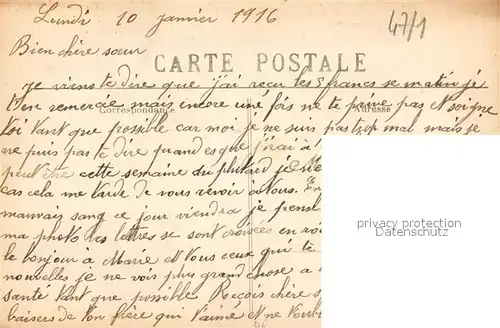 Lundi 10 janvier 1916
47/1
Bien chère soeur
CARTE POSTALE
Je viens te dire que j'ai reçu les 5 francs se matin je
t'en remercie mais encore une fois ne te prive pas et soigne
Correspondance
Adresse
toi tant que possible car moi je ne suis pas trop mal mais je
ne puis pas te dire quand es que j'irai a
peut être cette semaine du plutard je
cas cela me tarde de vous revoir a tous.
mauvais sang ce jour viendra je pense
ma photo les lettres se sont croisées en
le bonjour a Marie et tous ceux qui te
nouvelles je ne vois plus grand chose a
santé tant que possible Reçois chère
baisers de ton frère qui t'aime et ne
privacy protection
Datenschutz